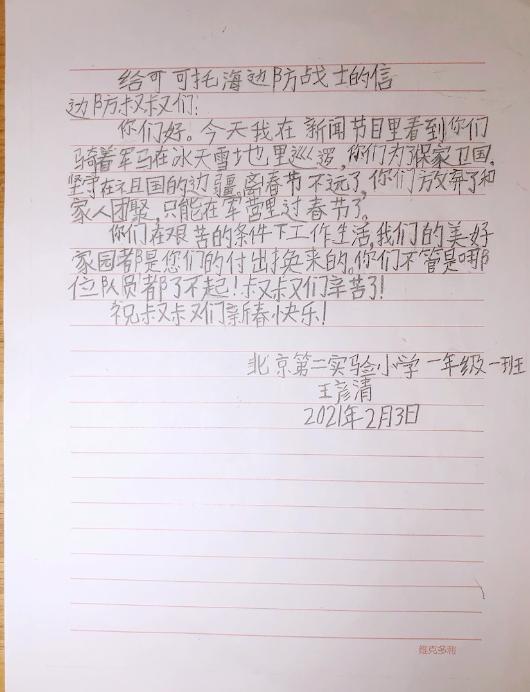 给可可托海边防战士的信
边防叔叔们:
你们好。今天我在新闻节目里看到你们
骑着军马在冰天雪地里巡逻,你们为了保家卫国,
坚守在祖国的边疆。离春节不远了,你们放弃了和
家人团聚,只能在军营里过春节了。
你们在艰苦的条件下工作生活,我们的美好
家园都是您们的付出换来的。你们不管是哪
位队员都了不起!叔叔们辛苦了!
祝叔叔们新春快乐!
北京第二实验小学一年级一班
王彦清
2021年2月3日
维克多利